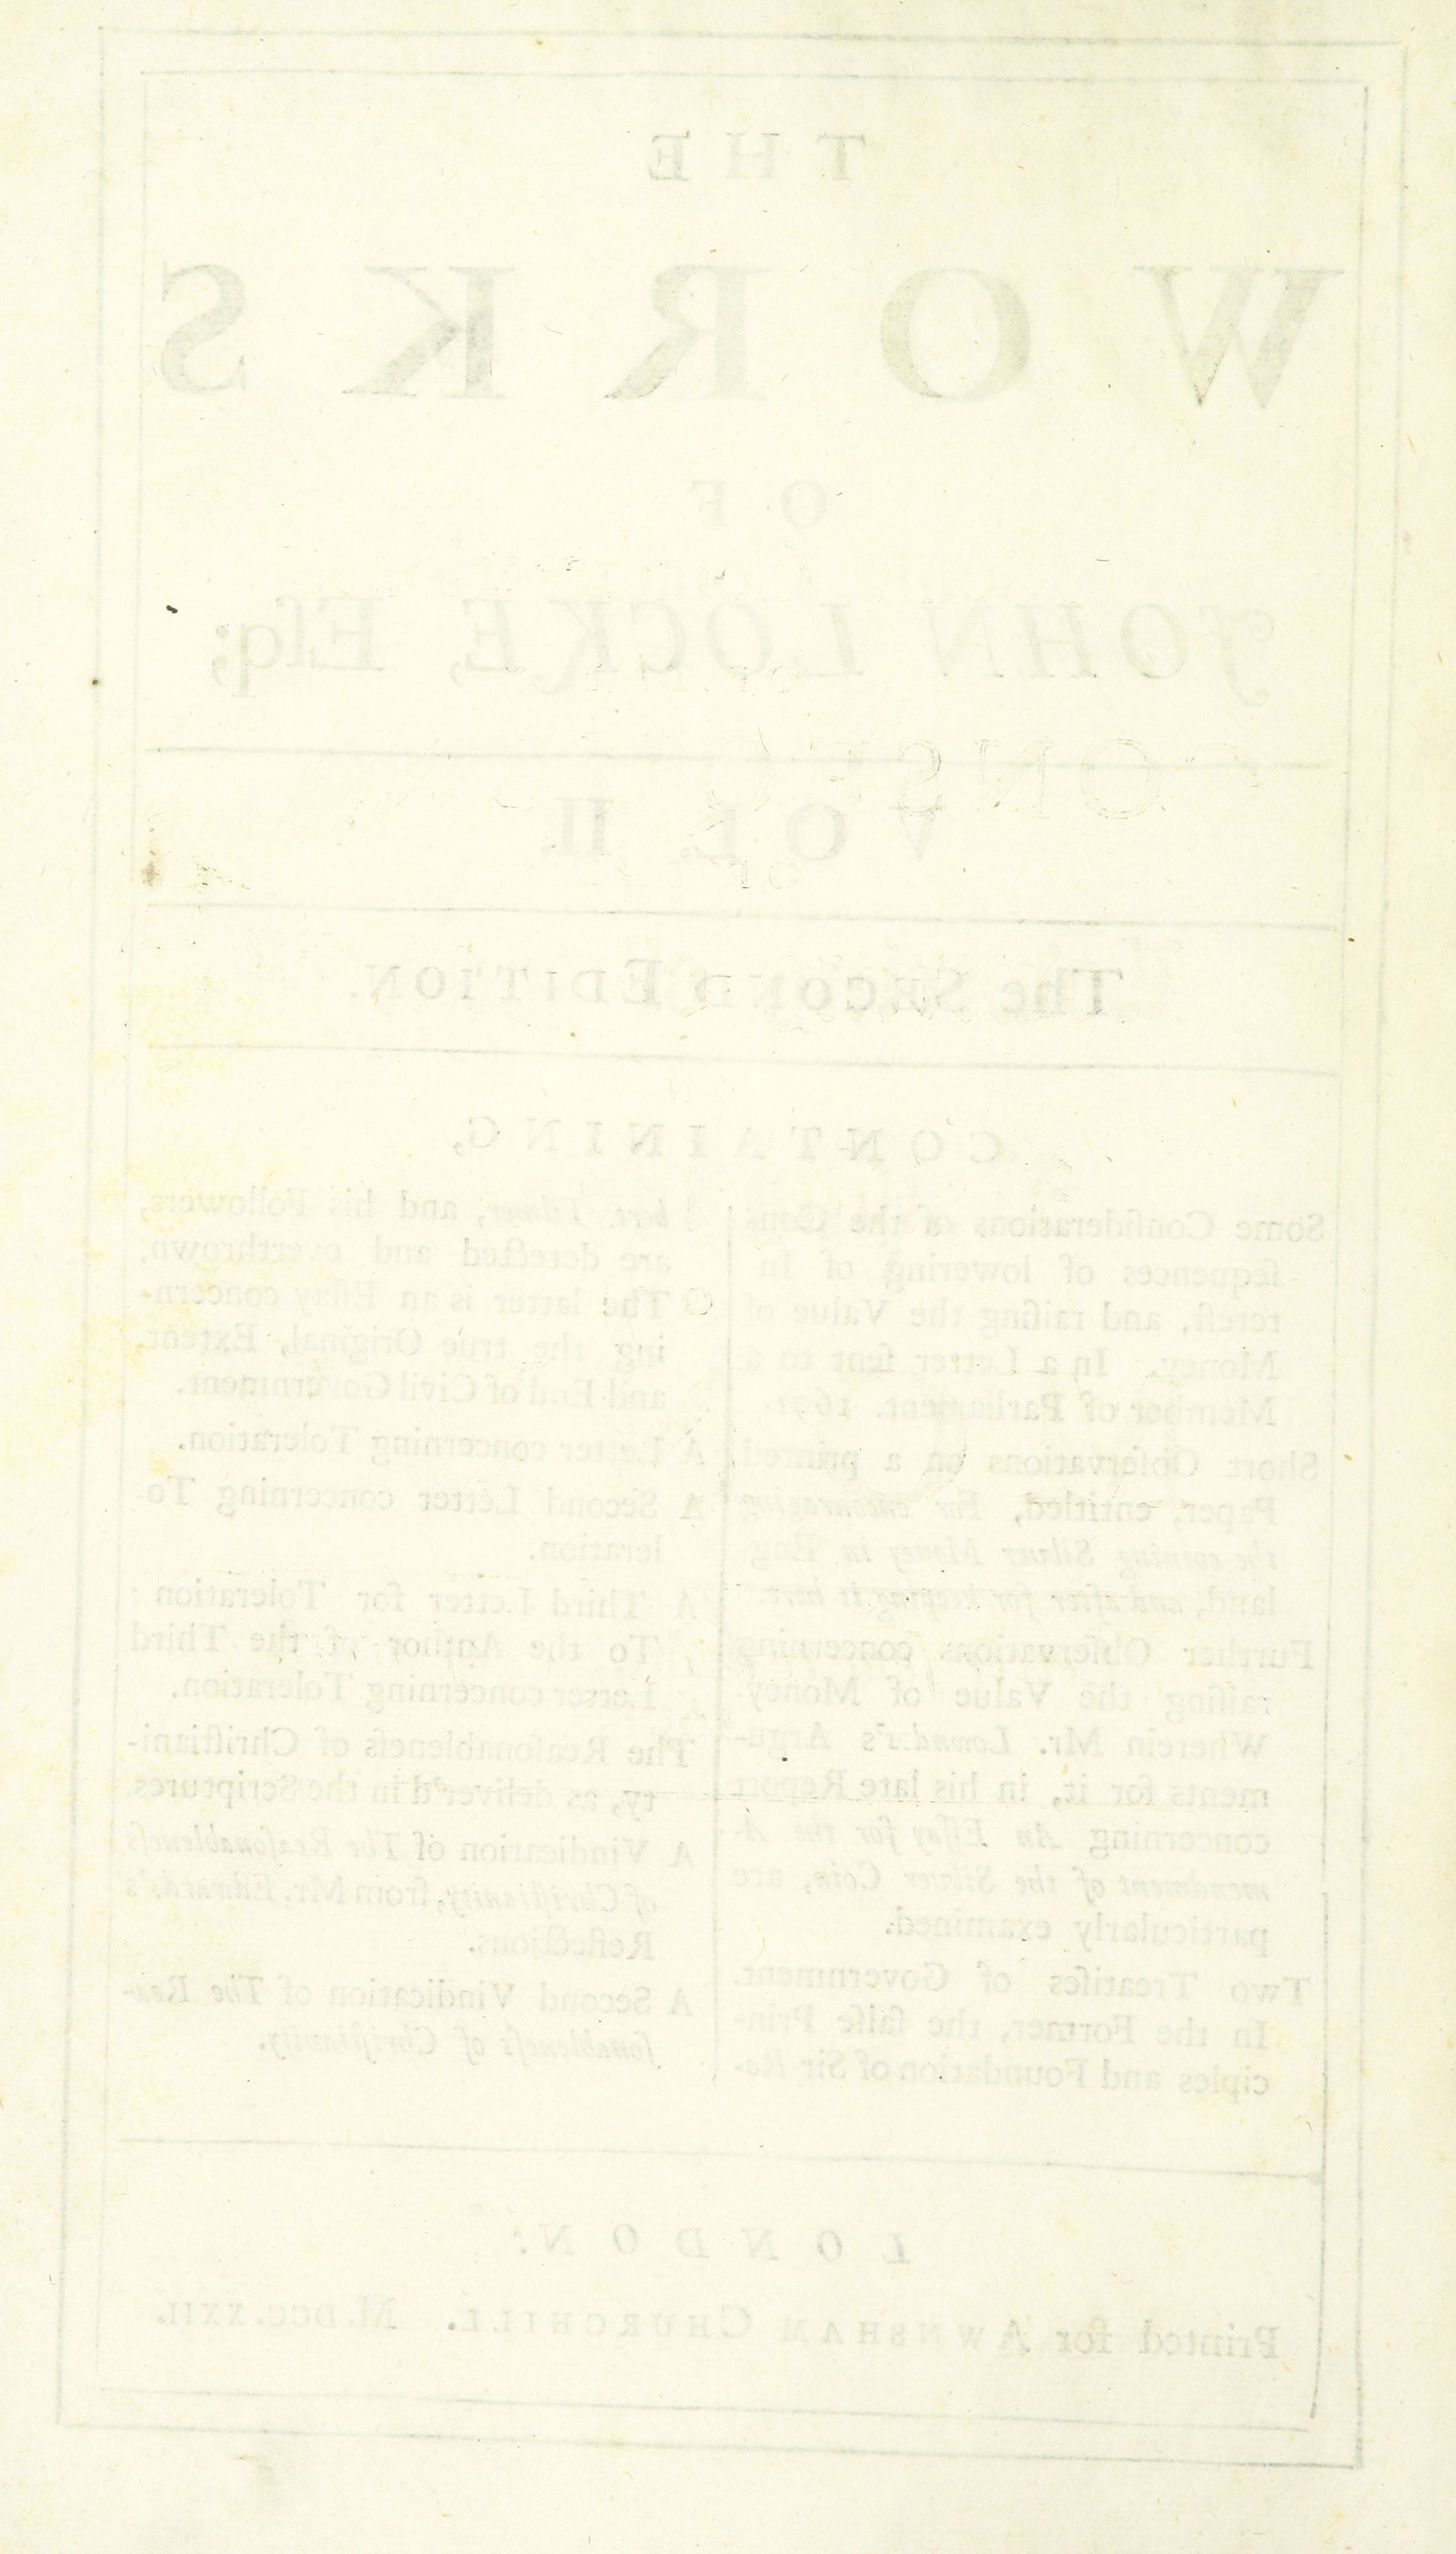 THE
WORKS
OF
JOHN LOCKE, Eſq;
VOL. II.
The SECOND EDITION.
CONTAINING,
Some Conſiderations of the Con-
ſequences of lowering of In-
tereſt, and raiſing the Value of
Money. In a Letter ſent to a
Member of Parliament. 1691.
Short Obſervations on a printed
Paper, entitled, For encouraging
the coining Silver Money in Eng-
land, and after for keeping it here.
Further Obſervations concerning
raiſing the Value of Money.
Wherein Mr. Lowndes's Argu-
ments for it, in his late Report
concerning An Eſſay for the A-
mendment of the Silver Coin, are
particularly examined.
Two Treatiſes of Government.
In the Former, the falſe Prin-
ciples and Foundation of Sir Ro-
bert Filmer, and his Followers,
are detected and overthrown.
The latter is an Eſſay concern-
ing the true Original, Extent,
and End of Civil Government.
A Letter concerning Toleration.
A Second Letter concerning To-
leration.
A Third Letter for Toleration:
To the Author of the Third
Letter concerning Toleration.
The Reaſonableneſs of Chriſtiani-
ty, as deliver'd in the Scriptures.
A Vindication of The Reaſonableneſs
of Chriſtianity, from Mr. Edwards's
Reflections.
A Second Vindication of The Rea-
ſonableneſs of Chriſtianity.
LONDON:
Printed for AWNSHAM CHURCHILL. M.DCC.XXII.